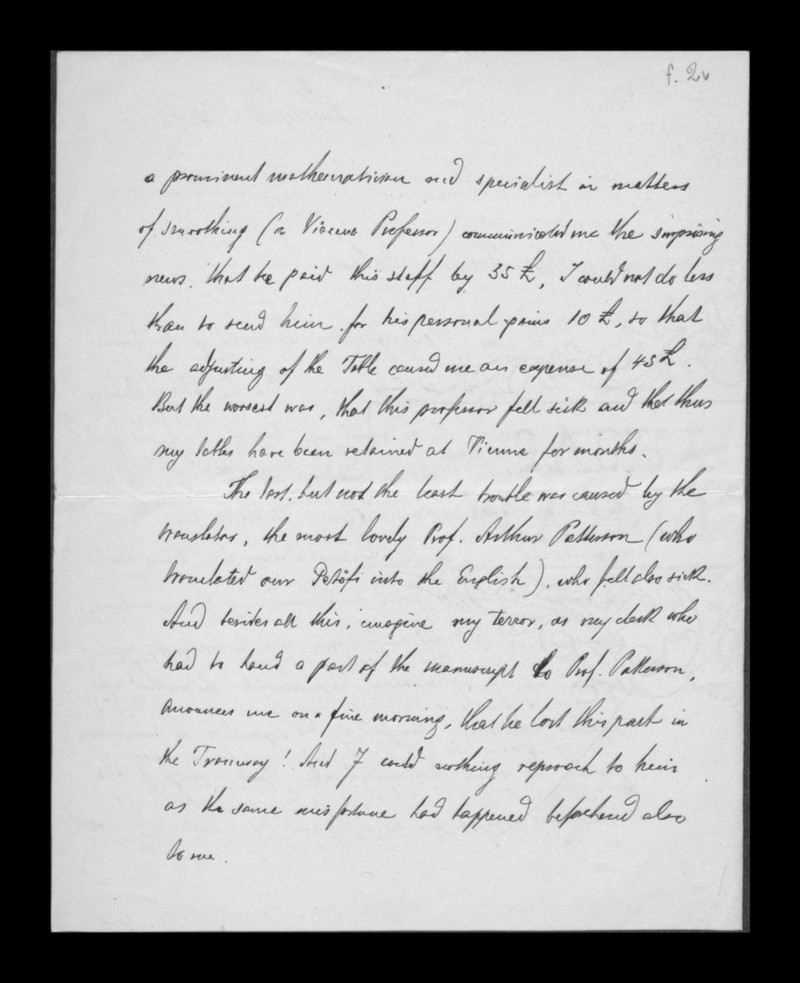 f. 2v
a prominent mathematician and specialist in matters
of smoothing (a Vienna Professor) communicated me the surprising
news, that he paid this staff by 35 £, I could not do less
than to send him for his personal pains 10 £, so that
the adjusting of the Table caused me an expense of 45 £.
But the worsest was, that this professor fell sick and that thus
my tables have been retained at Vienna for months.
The last, but not the least trouble was caused by the
translator, the most lovely Prof. Arthur Patterson (who
translated our Petöfi into the English), who fell also sick.
And besides all this, imagine my terror, as my clerk who
had to hand a part of the manuscript to Prof. Patterson,
anounces me on a fine morning, that he lost this part in
the Tramway! And I could nothing reproach to him
as the same misfortune had happened beforehand also
to me.